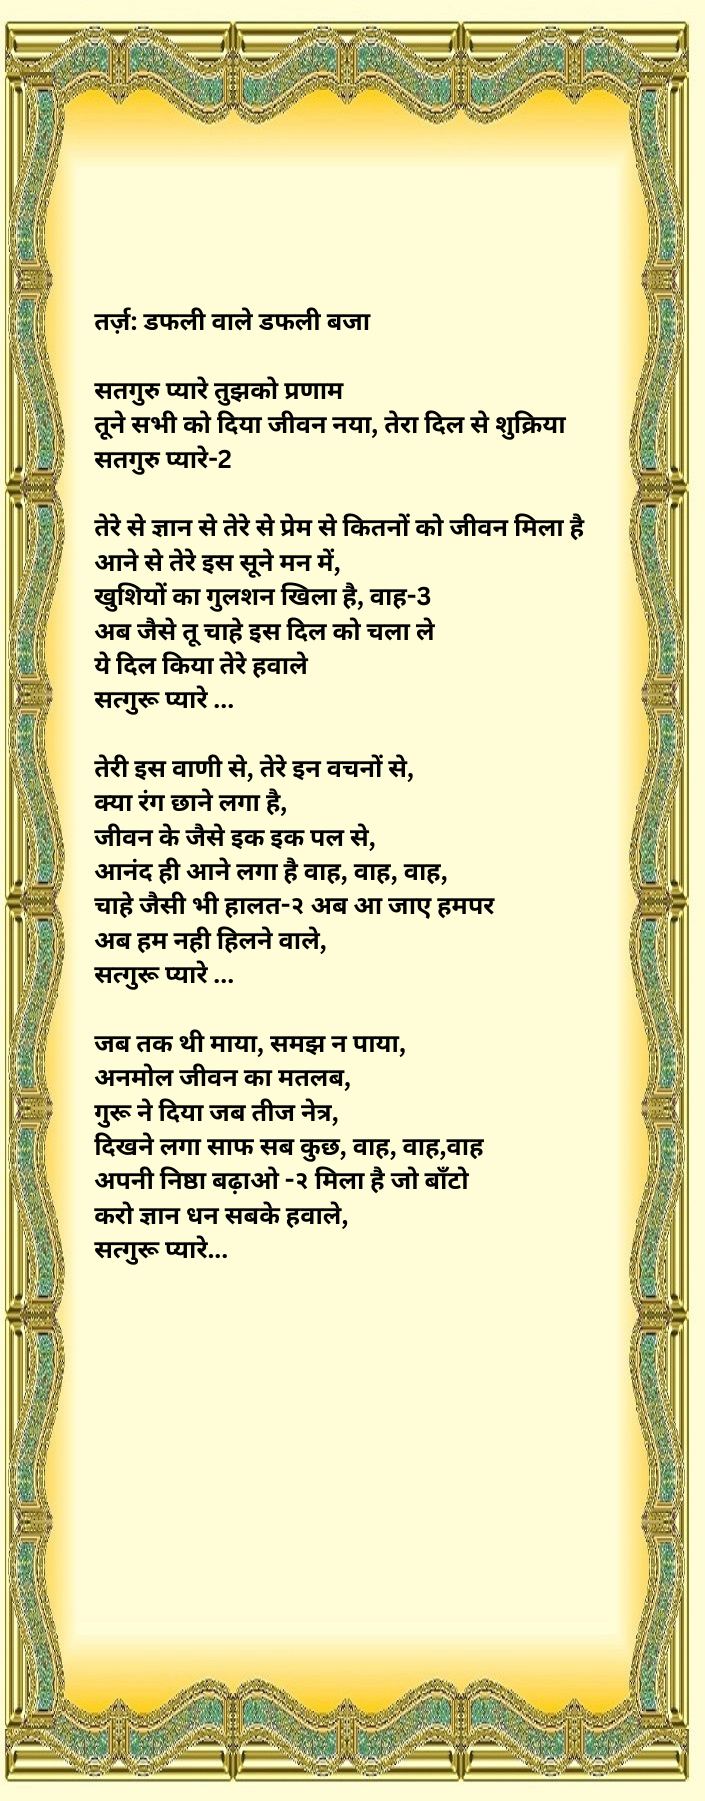 तर्ज़: डफली वाले डफली बजा
सतगुरु प्यारे तुझको प्रणाम
तूने सभी को दिया जीवन नया, तेरा दिल से शुक्रिया
सतगुरु प्यारे-2
तेरे से ज्ञान से तेरे से प्रेम से कितनों को जीवन मिला है
आने से तेरे इस सूने मन में,
खुशियों का गुलशन खिला है, वाह-3
अब जैसे तू चाहे इस दिल को चला ले
ये दिल किया तेरे हवाले
सत्गुरू प्यारे ...
तेरी इस वाणी से, तेरे इन वचनों से,
क्या रंग छाने लगा है,
जीवन के जैसे इक इक पल से,
आनंद ही आने लगा है वाह, वाह, वाह,
चाहे जैसी भी हालत-२ अब आ जाए हमपर
अब हम नही हिलने वाले,
सत्गुरू प्यारे ...
जब तक थी माया, समझ न पाया,
अनमोल जीवन का मतलब,
गुरू ने दिया जब तीज नेत्र,
दिखने लगा साफ सब कुछ, वाह, वाह,वाह
अपनी निष्ठा बढ़ाओ -२ मिला है जो बाँटो
करो ज्ञान धन सबके हवाले,
सत्गुरू प्यारे...